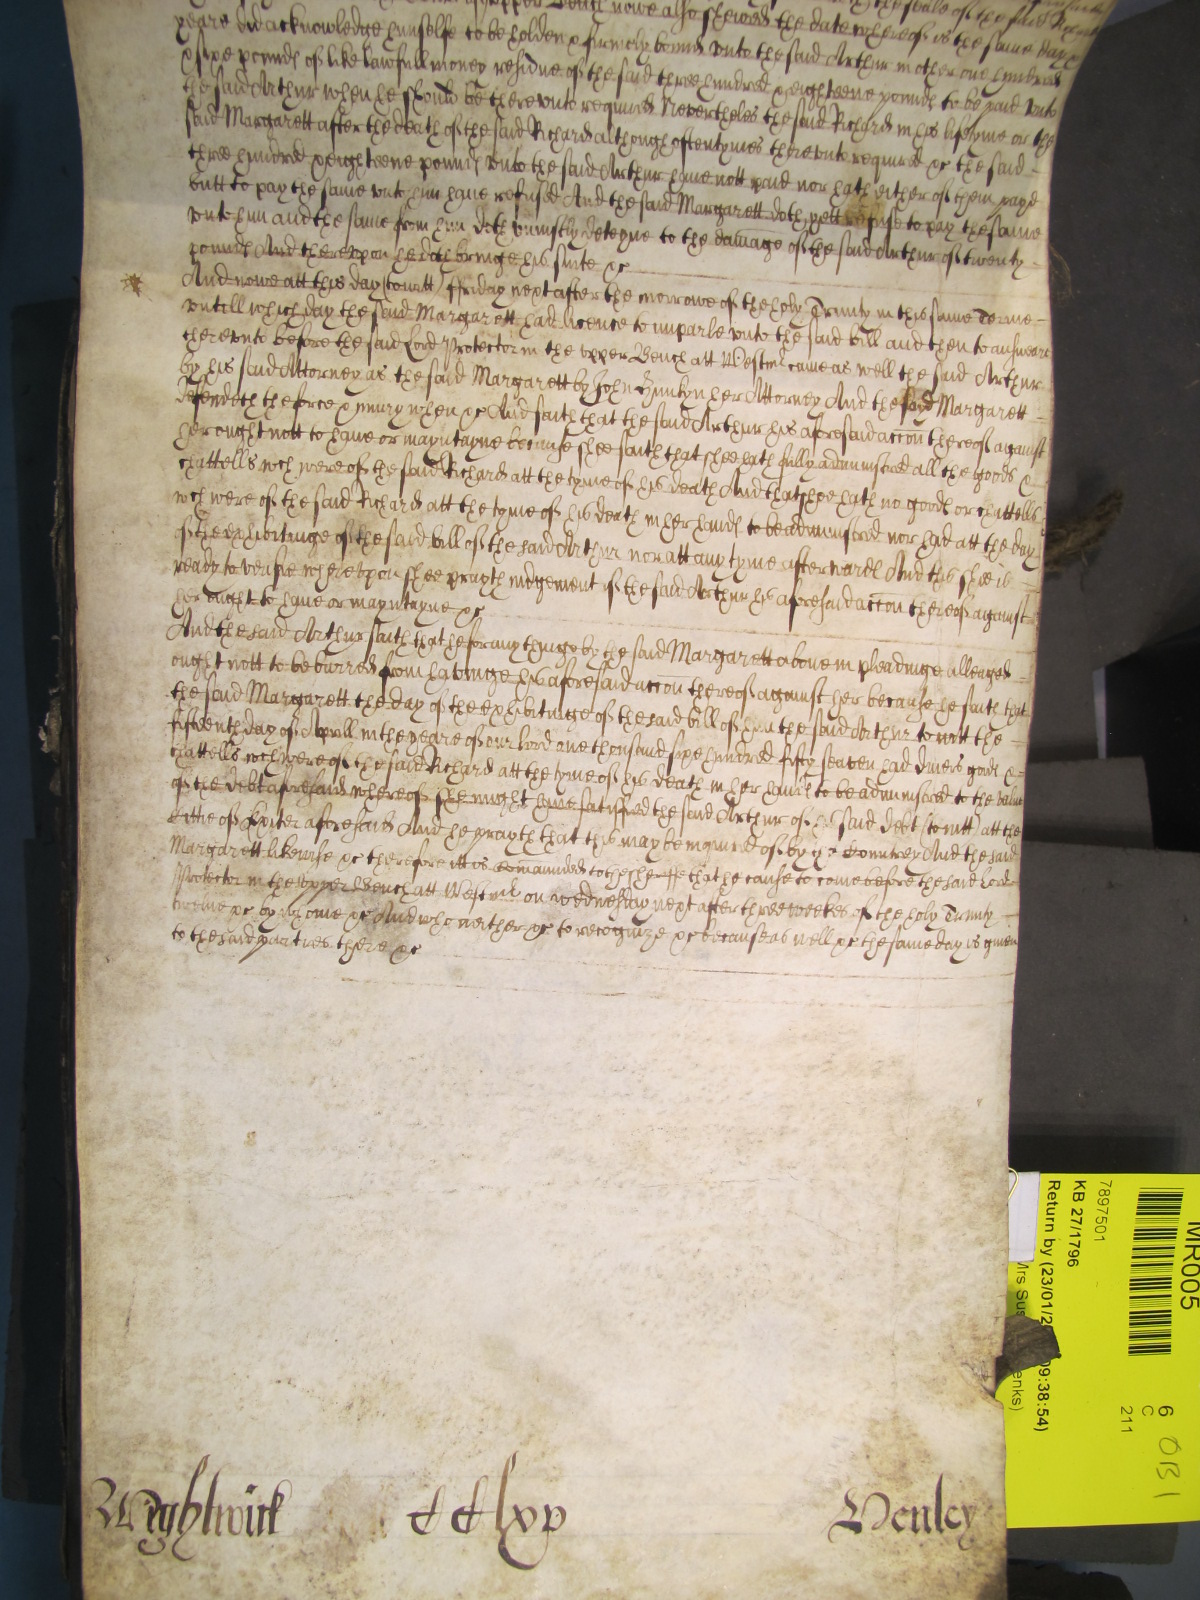 Bench nowe also shewed the date whereof is the same day &
yeare did acknowledge himselfe to be holden & firmely bound unto the said Arthur in other one hundred
& sixe pounds of like lawfull money residue of the said three hundred & eighteene pounds to be paid unto
the said Arthur when he should be thereunto required Neverthelesse the said Richard in his lifetyme or the
said Margarett after the death of the said Richard although oftentymes thereunto required &c the said
three hundred & eighteene pounds unto the said Arthur have nott paid nor hath either of them payd
butt to pay the same unto him have refused And the said Margarett doth yett refuse to pay the same
unto him and the same from him doth uniustly deteyne to the damage of the said Arthur of twenty
pounds And thereupon he doth bringe his suite &c
And nowe att this day (to witt) ffriday next after the morrowe of the holy Trinity in this same Terme
untill which day the said Margarett had licence to imparle unto the said bill and then to answeare
thereunto before the said Lord Protector in the upper Bench att Westmr came as well the said Arthur
by his said Attorney as the said Margarett by John Hunkyn her Attorney And the said Margarett
defendeth the force & iniury when &c And saith that the said Arthur his aforesaid accon thereof against
her ought nott to have or mayntayne because shee saith that shee hath fully administred all the goods &
chattells wch were of the said Richard att the tyme of his death And that shee hath no goods or chattells
wch were of the said Richard att the tyme of his death in her hands to be administred nor had att the day
of the exhibitinge of the said bill of the said Arthur nor att any tyme afterwards And this shee is
ready to verifie whereupon shee prayth iudgement if the said Arthur his aforesaid accon thereof against
her ought to have or mayntayne &c
And the said Arthur saith that he for any thinge by the said Margarett above in pleadinge alleaged
ought nott to be barred from havinge his aforesaid accon thereof against her because he saith that
the said Margarett the day of the exhibitinge of the said bill of him the said Arthur to witt the
fifteenth day of Aprill in the yeare of our Lord one thousand sixe hundred fifty seaven had divers goods &
chattells wch were of the said Richard att the tyme of his death in her hands to be administred to the value
of the debt aforesaid whereof she might have satisfied the said Arthur of his said debt (to witt) att the
Cittie of Exiter aforesaid And he prayth that this may be inquired of by the Countrey And the said
Margarett likewise &c therefore itt is Comaunded to the Sheriffe that he cause to come before the said Lord
Protector in the Upper Bench att Westmr on wednesday next after three weekes of the holy Trinity
twelve &c by whome &c And who neither &c to recognize &c because as well &c the same day is given
to the said parties there &c
Wightwick CClxv Henley
MR005
7897501
KB 27/1796
Return by (23/01/2 09:38:54)
Mrs Sus enks)
6
C
211